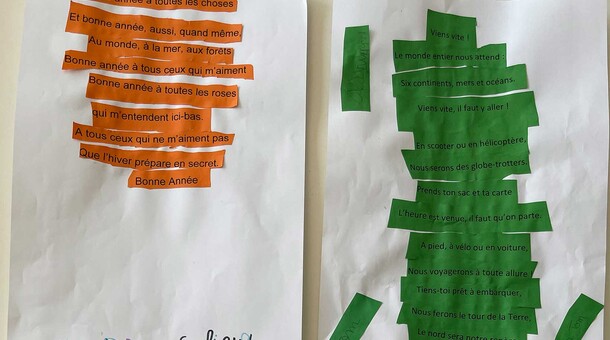 année à toutes les choses
Et bonne année, aussi, quand même,
Au monde, à la mer, aux forêts
Bonne année à tous ceux qui m'aiment
Bonne année à toutes les roses
qui m'entendent ici-bas.
A tous ceux qui ne m'aiment pas
Que l'hiver prépare en secret.
Bonne Année
Viens vite !
Le monde entier nous attend :
Six continents, mers et océans.
Viens vite, il faut y aller !
En scooter ou en hélicoptère,
Nous serons des globe-trotters.
Prends ton sac et ta carte
L'heure est venue, il faut qu'on parte.
A pied, à vélo ou en voiture,
Nous voyagerons à toute allure.
Tiens-toi prêt à embarquer,
Nous ferons le tour de la Terre,
Le nord sera notre